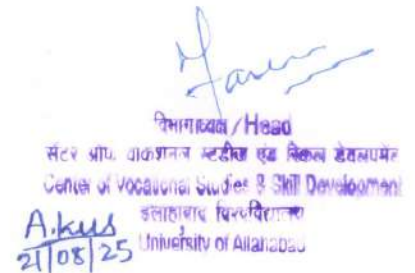 विभागाध्यक्ष / Head
सेंटर ऑफ वोकेशनल स्टडीज एंड स्किल डेवलपमेंट
Center of Vocational Studies & Skill Development
इलाहाबाद विश्वविद्यालय
University of Allahabad
21/08/25